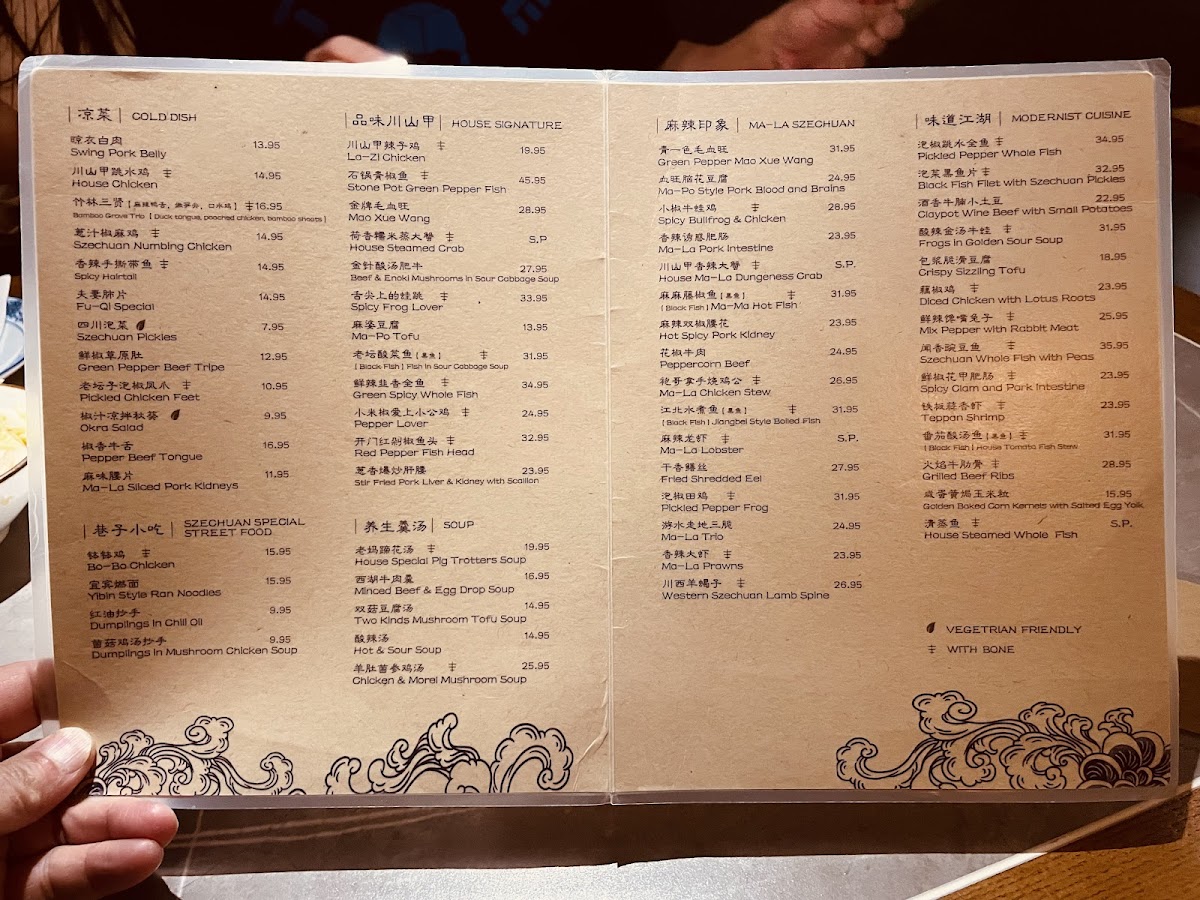 凉菜 COLD DISH
晾衣白肉
Swing Pork Belly 13.95
川山甲跳水鸡
House Chicken 14.95
竹林三贤 [麻辣鸭舌, 嫩笋尖, 口水鸡] 16.95
Bamboo Grove Trio [ Duck tongue, poached chicken, bamboo shoots ]
葱汁椒麻鸡 14.95
Szechuan Numbing Chicken
香辣手撕带鱼 14.95
Spicy Hairtail
夫妻肺片 14.95
Fu-Qi Special
四川泡菜 7.95
Szechuan Pickles
鲜椒草原肚 12.95
Green Pepper Beef Tripe
老坛子泡椒凤爪 10.95
Pickled Chicken Feet
椒汁凉拌秋葵 9.95
Okra Salad
椒香牛舌 16.95
Pepper Beef Tongue
麻味腰片 11.95
Ma-La Sliced Pork Kidneys
巷子小吃 SZECHUAN SPECIAL
STREET FOOD
钵钵鸡 15.95
Bo-Bo Chicken
宜宾燃面 15.95
Yibin Style Ran Noodles
红油抄手 9.95
Dumplings in Chili Oil
菌菇鸡汤抄手 9.95
Dumplings in Mushroom Chicken Soup
品味川山甲 HOUSE SIGNATURE
川山甲辣子鸡 19.95
La-Zi Chicken
石锅青椒鱼 45.95
Stone Pot Green Pepper Fish
金牌毛血旺 28.95
Mao Xue Wang
荷香糯米蒸大蟹 S.P
House Steamed Crab
金针酸汤肥牛 27.95
Beef & Enoki Mushrooms in Sour Cabbage Soup
舌尖上的蛙跳 33.95
Spicy Frog Lover
麻婆豆腐 13.95
Ma-Po Tofu
老坛酸菜鱼 [黑鱼] 31.95
[ Black Fish ] Fish in Sour Cabbage Soup
鲜辣韭香全鱼 34.95
Green Spicy Whole Fish
小米椒爱上小公鸡 24.95
Pepper Lover
开门红剁椒鱼头 32.95
Red Pepper Fish Head
葱香爆炒肝腰 23.95
Stir Fried Pork Liver & Kidney with Scallion
养生羹汤 SOUP
老妈蹄花汤 19.95
House Special Pig Trotters Soup
西湖牛肉羹 16.95
Minced Beef & Egg Drop Soup
双菇豆腐汤 14.95
Two Kinds Mushroom Tofu Soup
酸辣汤 14.95
Hot & Sour Soup
羊肚菌参鸡汤 25.95
Chicken & Morel Mushroom Soup
麻辣印象 MA-LA SZECHUAN
青一色毛血旺 31.95
Green Pepper Mao Xue Wang
血旺脑花豆腐 24.95
Ma-Po Style Pork Blood and Brains
小椒牛蛙鸡 28.95
Spicy Bullfrog & Chicken
香辣诱惑肥肠 23.95
Ma-La Pork Intestine
川山甲香辣大蟹 S.P.
House Ma-La Dungeness Crab
麻麻藤椒鱼 [黑鱼] 31.95
[ Black Fish ] Ma-Ma Hot Fish
麻辣双椒腰花 23.95
Hot Spicy Pork Kidney
花椒牛肉 24.95
Peppercorn Beef
袍哥拿手烧鸡公 26.95
Ma-La Chicken Stew
江北水煮鱼 [黑鱼] 31.95
[ Black Fish ] Jiangbei Style Boiled Fish
麻辣龙虾 S.P.
Ma-La Lobster
干香鳝丝 27.95
Fried Shredded Eel
泡椒田鸡 31.95
Pickled Pepper Frog
游水走地三脆 24.95
Ma-La Trio
香辣大虾 23.95
Ma-La Prawns
川西羊蝎子 26.95
Western Szechuan Lamb Spine
味道江湖 MODERNIST CUISINE
泡椒跳水全鱼 34.95
Pickled Pepper Whole Fish
泡菜黑鱼片 32.95
Black Fish Filet with Szechuan Pickles
酒香牛腩小土豆 22.95
Claypot Wine Beef with Small Potatoes
酸辣金汤牛蛙 31.95
Frogs in Golden Sour Soup
包浆脆滑豆腐 18.95
Crispy Sizzling Tofu
藕椒鸡 23.95
Diced Chicken with Lotus Roots
鲜辣馋嘴兔子 25.95
Mix Pepper with Rabbit Meat
闻香豌豆鱼 35.95
Szechuan Whole Fish with Peas
鲜椒花甲肥肠 23.95
Spicy Clam and Pork Intestine
铁板蒜香虾 23.95
Teppan Shrimp
番茄酸汤鱼 [黑鱼] 31.95
[ Black Fish ] House Tomato Fish Stew
火焰牛肋骨 28.95
Grilled Beef Ribs
咸蛋黄焗玉米粒 15.95
Golden Baked Corn Kernels with Salted Egg Yolk
清蒸鱼 S.P.
House Steamed Whole Fish
VEGETRIAN FRIENDLY
WITH BONE